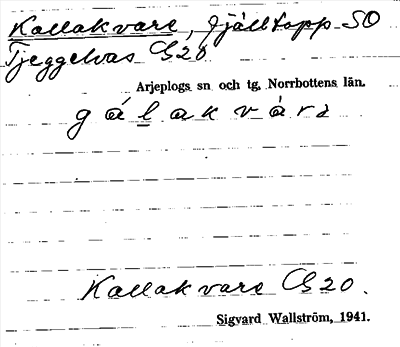 Kallakvare, fjälltopp SO
Tjeggelvas G20
Arjeplogs sn och tg, Norrbottens län.
g á l a k v á r a
Kallakvare G20.
Sigvard Wallström, 1941.